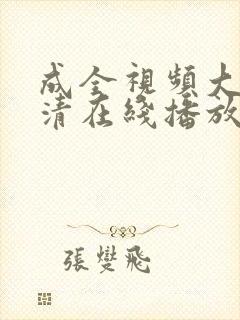 成全視頻大
清在綫播放
張燮飛